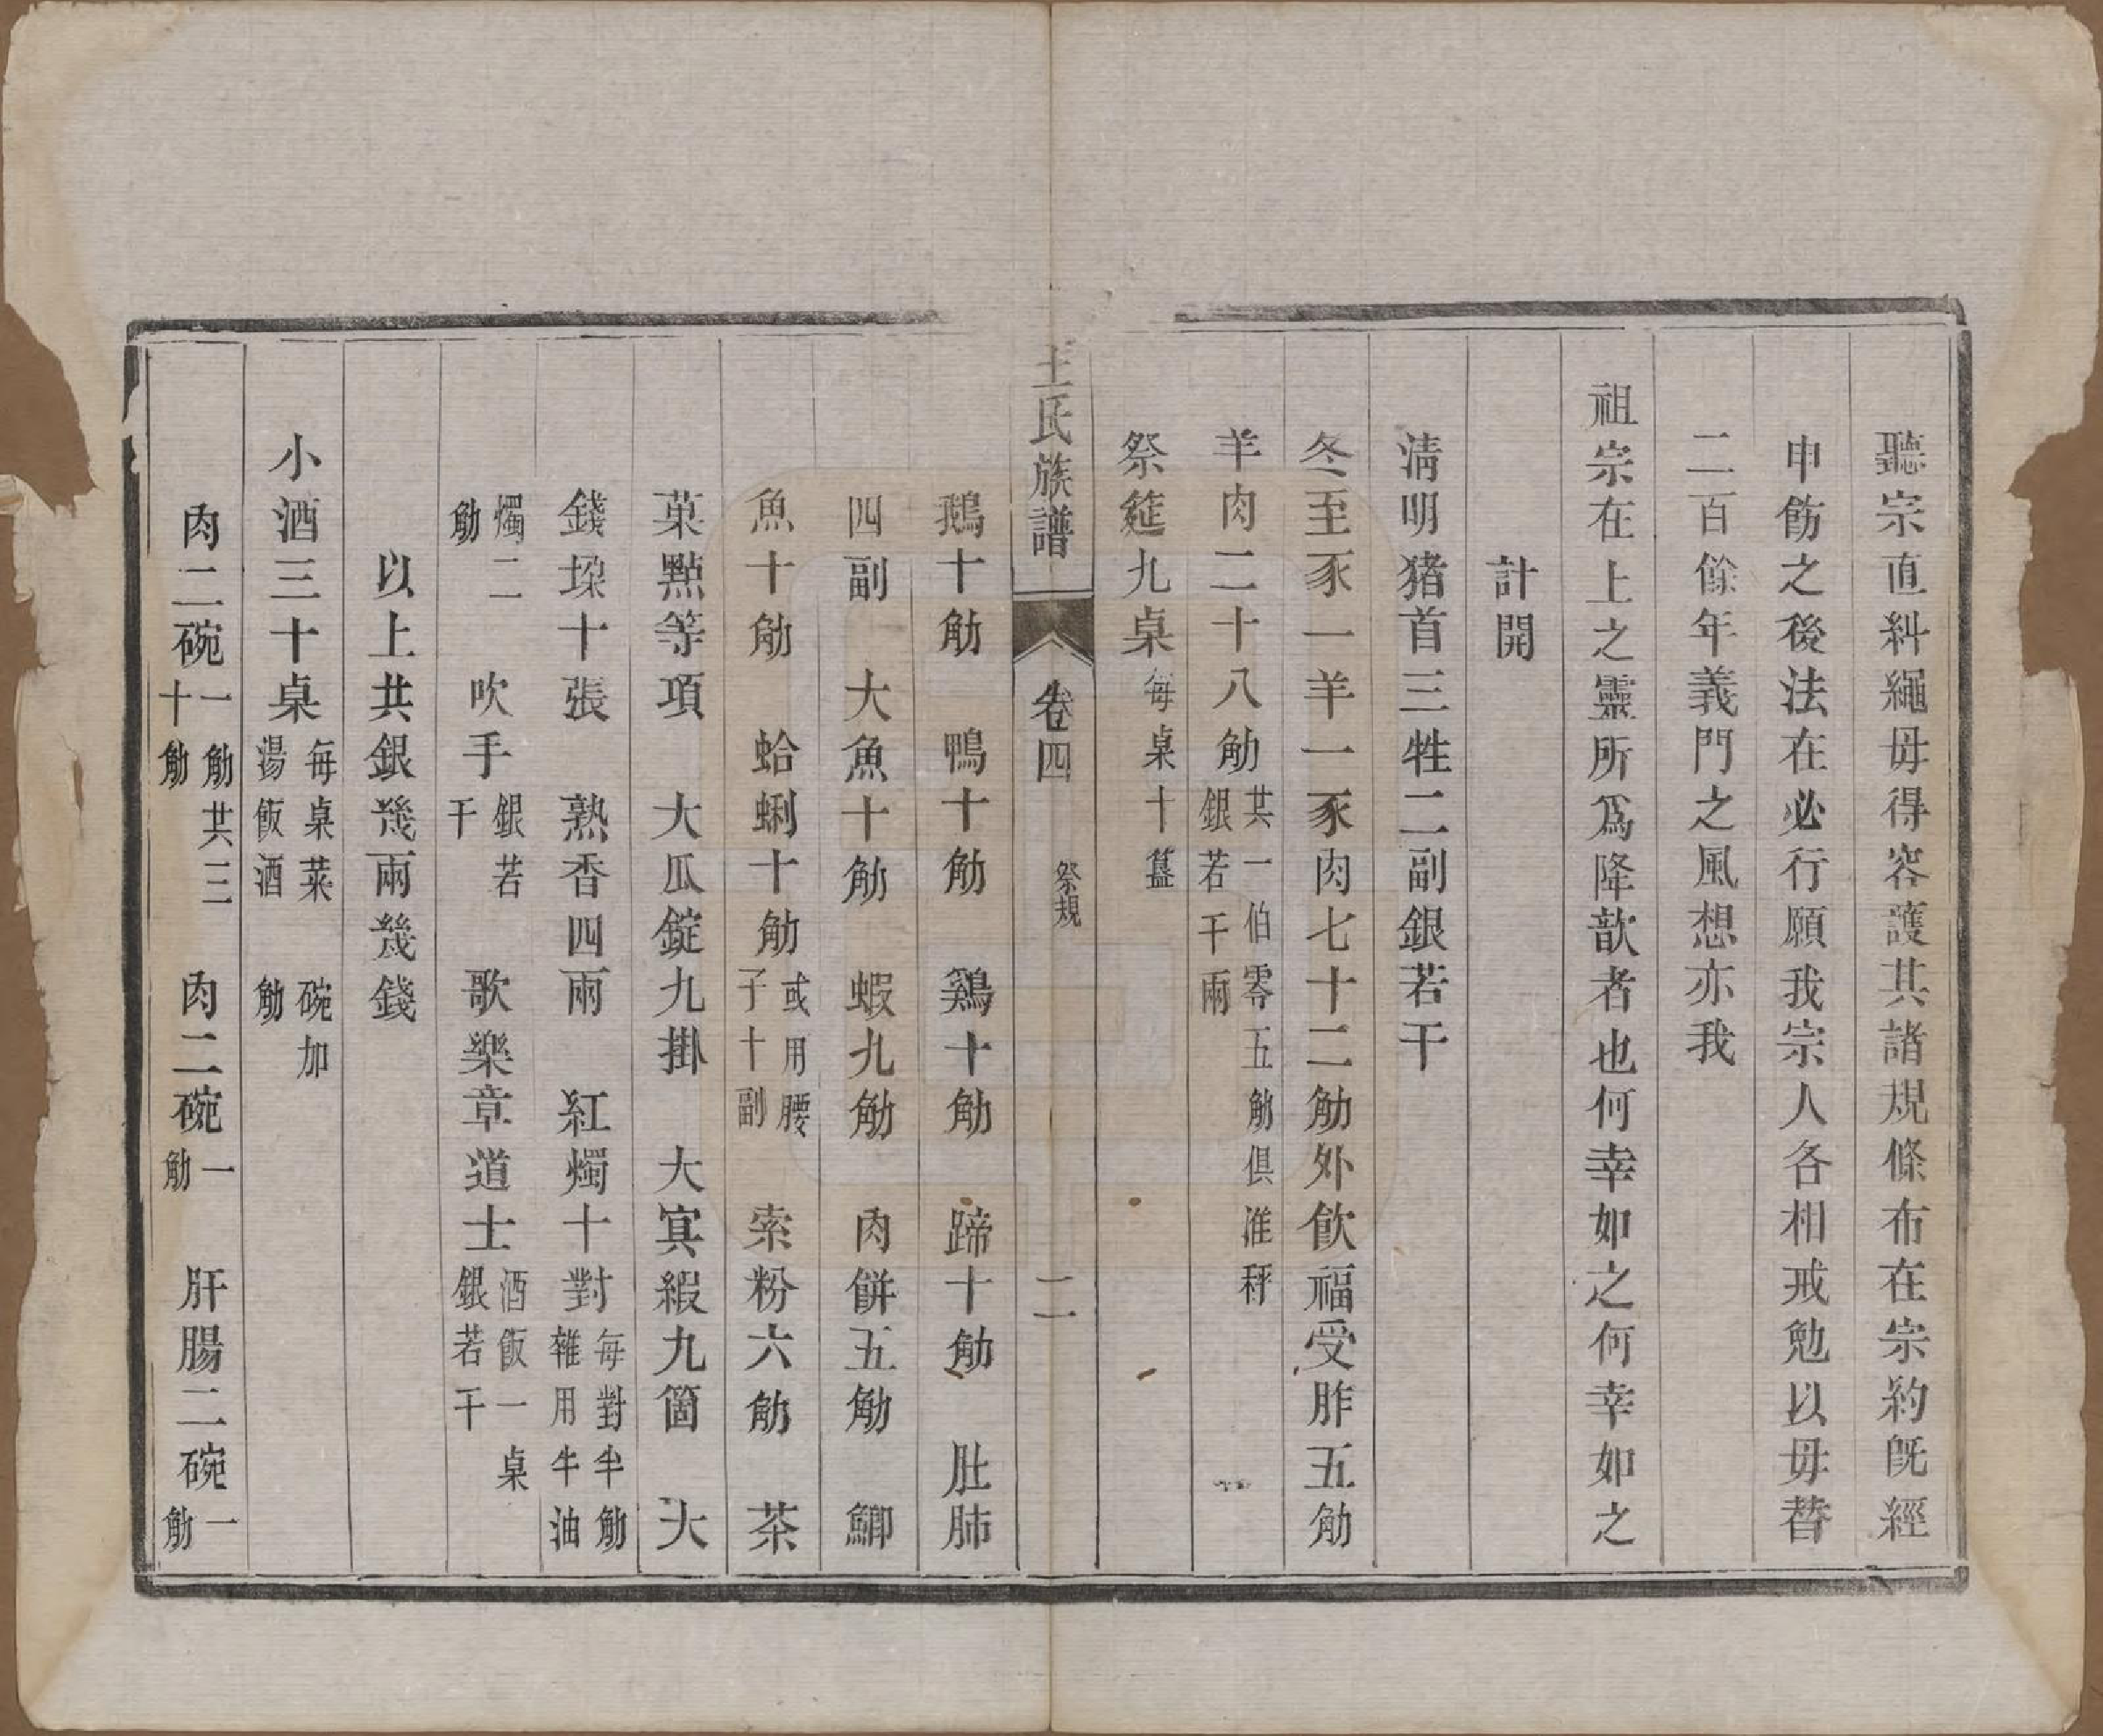 聽宗直糾繩毋得容護其諸規條布在宗約旣經
申飭之後法在必行願我宗人各相戒勉以毋替
二百餘年義門之風想亦我
祖宗在上之靈所爲降歆者也何幸如之何幸如之
計開
淸明猪首三牲二副銀若干
冬至豕一羊一豕肉七十二觔外飮福受胙五觔
羊肉二十八觔共一伯零五觔俱准秤銀若干兩
祭筵九桌每桌十簋
王氏族譜 卷四 祭規 二
鵝十觔 鴨十觔 鷄十觔 蹄十觔 肚肺
四副 大魚十觔 蝦九觔 肉餅五觔 鯽
魚十觔 蛤蜊十觔或用腰子十副 索粉六觔 茶
菓點等項 大瓜錠九掛 大寘緞九箇 大
錢垜十張 熟香四兩 紅燭十對每對半觔雜用牛油
燭二觔 吹手銀若干 歌樂章道士酒飯一桌銀若干
以上共銀幾兩幾錢
小酒三十桌每桌菜湯飯酒 碗加觔
肉二碗一觔共三十觔 肉二碗一觔 肝腸二碗一觔